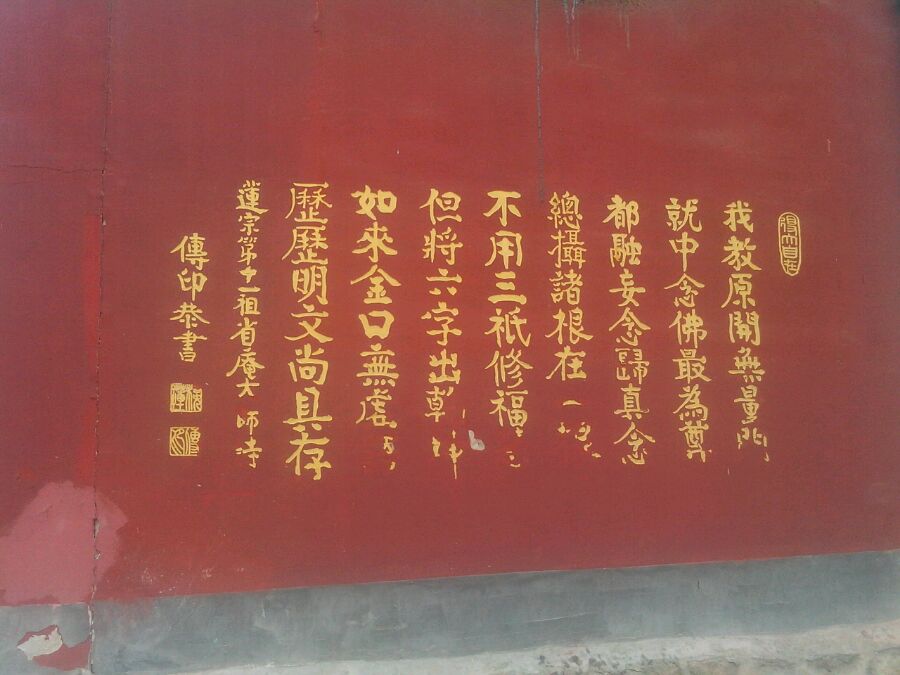 得大自在
我教原開無量門
就中念佛最為尊
都融妄念歸真念
總攝諸根在一
不用三祇修福
但將六字出
如來金口無虛
歷歷明文尚具存
蓮宗第十一祖省庵大師詩
傳印恭書
傳印